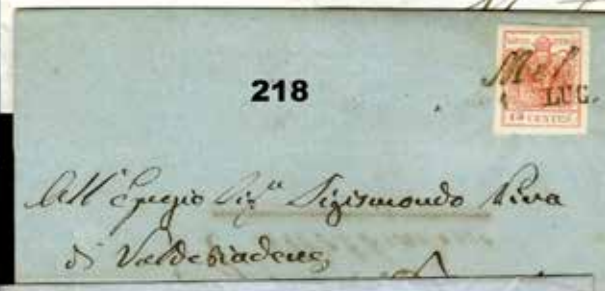 Mel
LUG.
15 CENTES
218
All'Egregio Sigr. Sigismondo Piva
di Valdobiadene